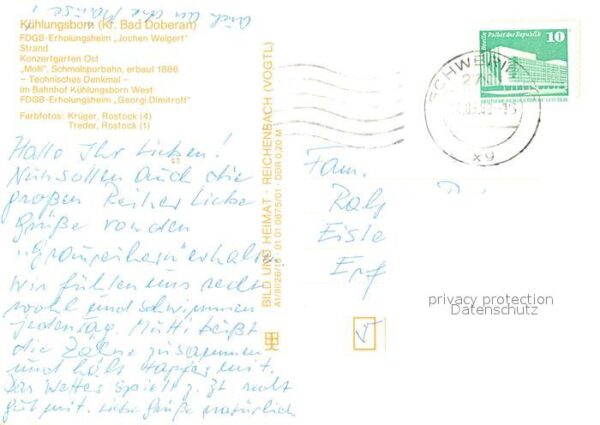 auch an die Mäuse!
Kühlungsborn (Kr. Bad Doberan)
FDGB-Erholungsheim „Jochen Weigert"
Strand
Konzertgarten Ost
„Molli", Schmalspurbahn, erbaut 1886
– Technisches Denkmal –
im Bahnhof Kühlungsborn West
FDGB-Erholungsheim „Georgi Dimitroff"
Farbfotos: Krüger, Rostock (4)
Treder, Rostock (1)
Hallo Ihr Lieben!
Nun sollen auch die
großen Reiher liebe
Grüße von den
"Graureihern" erhalten
Wir fühlen uns recht
wohl und schwimmen
jeden Tag. Mutti beißt
die Zähne zusammen
und hält tapfer mit.
Das Wetter spielt z. Zt. recht
gut mit. Liebe Grüße natürlich
BILD UND HEIMAT · REICHENBACH (VOGTL)
A1/III/26/13 01 01 0875/01 · DDR 0,20 M
Berlin Palast der Republik
10
DEUTSCHE DEMOKRATISCHE REPUBLIK
SCHWERIN
27
xg
Fam.
Ralf
Eisle
Erf
privacy protection
Datenschutz